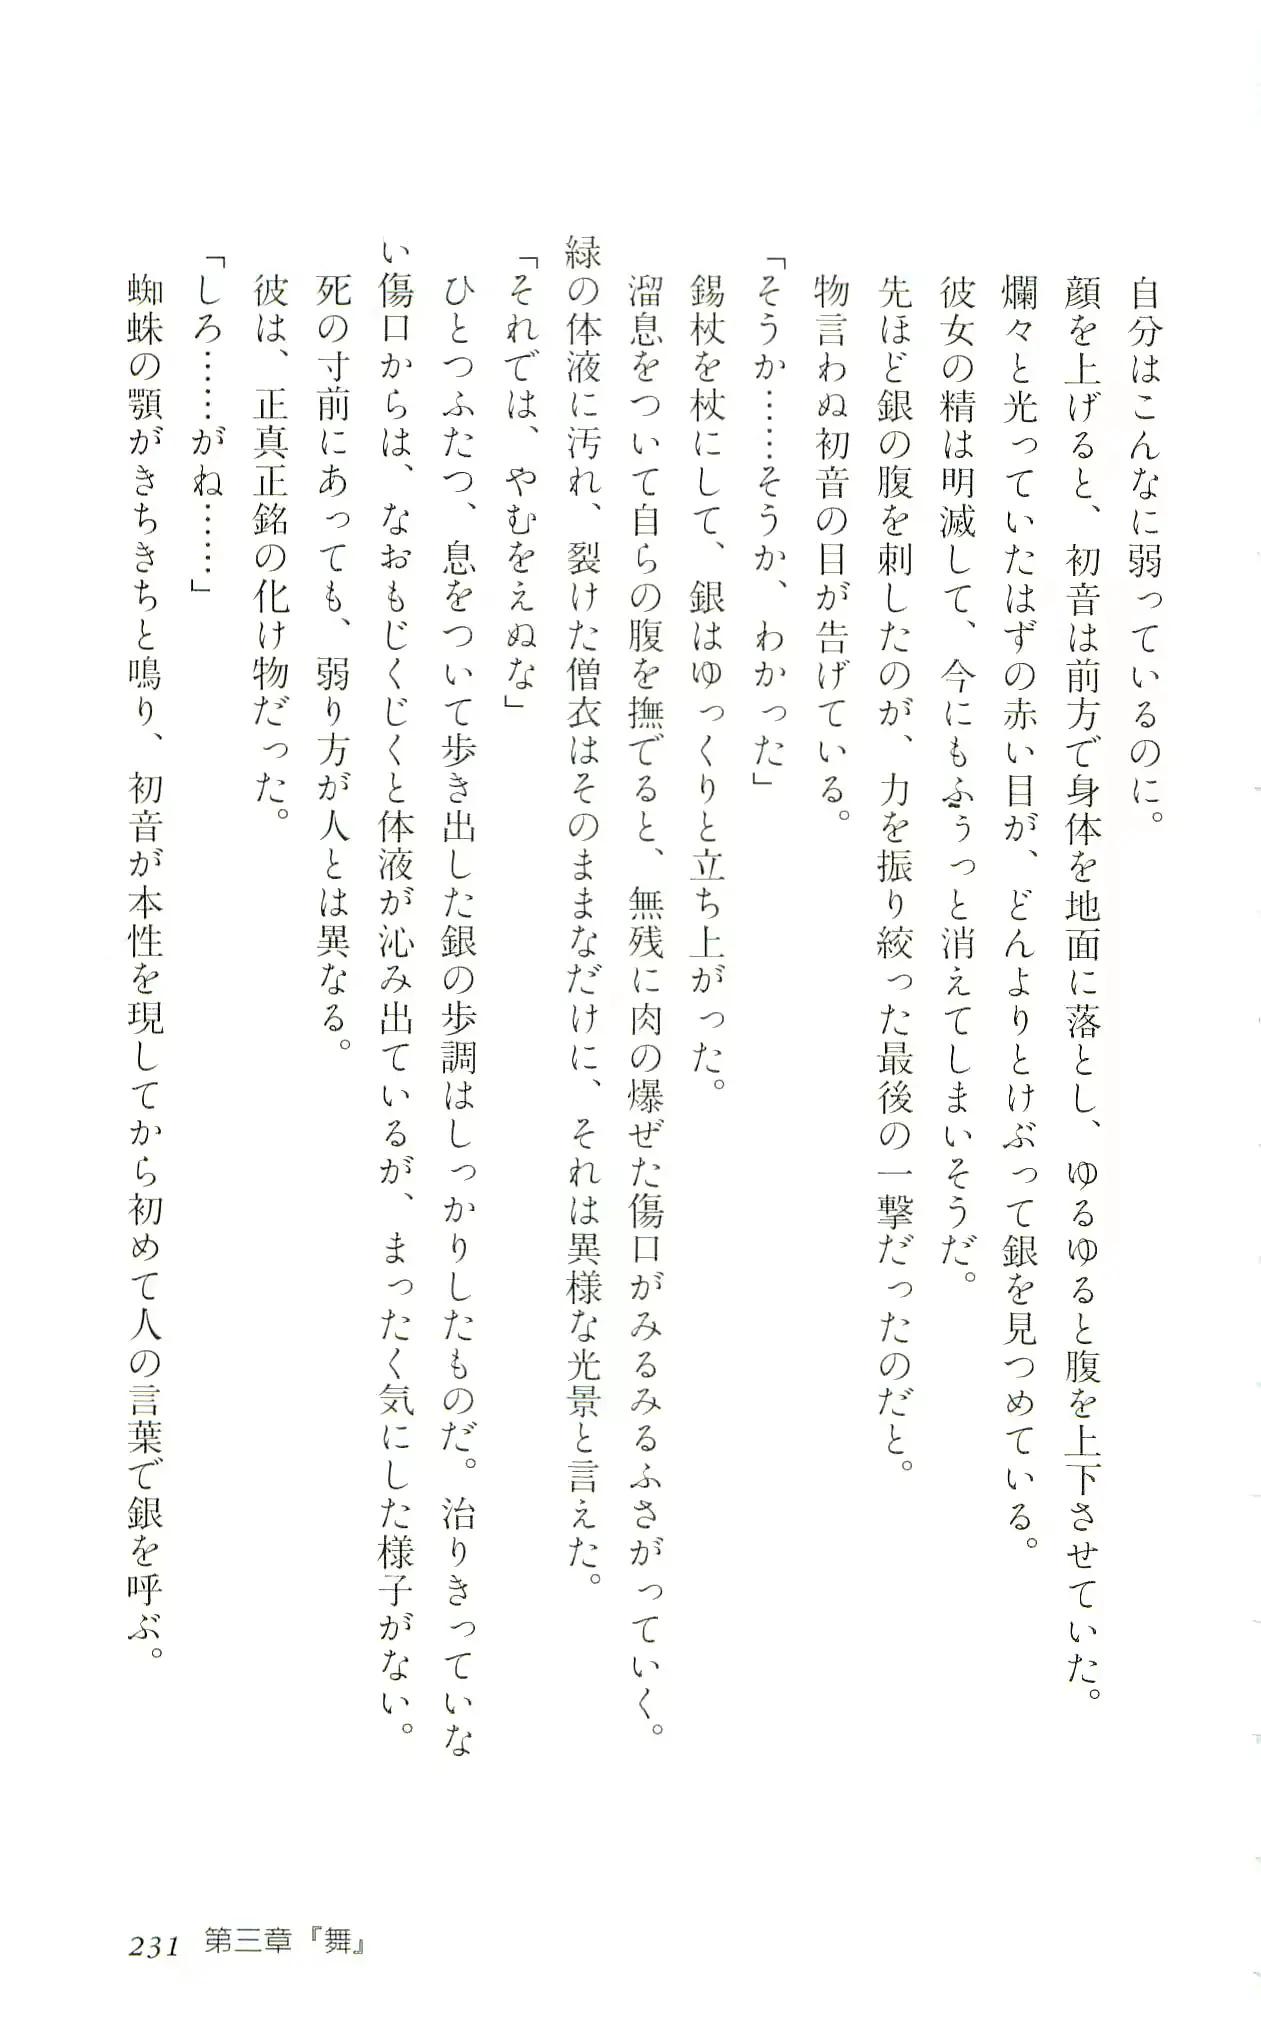 自分はこんなに弱っているのに。
顔を上げると、初音は前方で身体を地面に落とし、ゆるゆると腹を上下させていた。
爛々と光っていたはずの赤い目が、どんよりとけぶって銀を見つめている。
彼女の精は明滅して、今にもふぅっと消えてしまいそうだ。
先ほど銀の腹を刺したのが、力を振り絞った最後の一撃だったのだと。
物言わぬ初音の目が告げている。
「そうか……そうか、わかった」
錫杖を杖にして、銀はゆっくりと立ち上がった。
溜息をついて自らの腹を撫でると、無残に肉の爆ぜた傷口がみるみるふさがっていく。
緑の体液に汚れ、裂けた僧衣はそのままなだけに、それは異様な光景と言えた。
「それでは、やむをえぬな」
ひとつふたつ、息をついて歩き出した銀の歩調はしっかりしたものだ。治りきっていな
い傷口からは、なおもじくじくと体液が沁み出ているが、まったく気にした様子がない。
死の寸前にあっても、弱り方が人とは異なる。
彼は、正真正銘の化け物だった。
「しろ……がね……」
蜘蛛の顎がきちきちと鳴り、初音が本性を現してから初めて人の言葉で銀を呼ぶ。
231 第三章『舞』